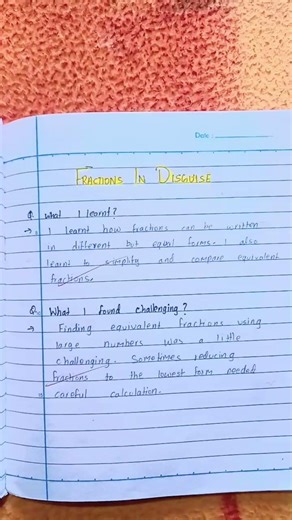 Date :
FRACTIONS IN DISGUISE
Q. What I learnt?
→ I learnt how fractions can be written
in different but equal forms. I also
learnt to simplify and compare equivalent
fractions.
Q. What I found challenging?
→ Finding equivalent fractions using
large numbers was a little
challenging. Sometimes reducing
fractions to the lowest form needed
careful calculation.